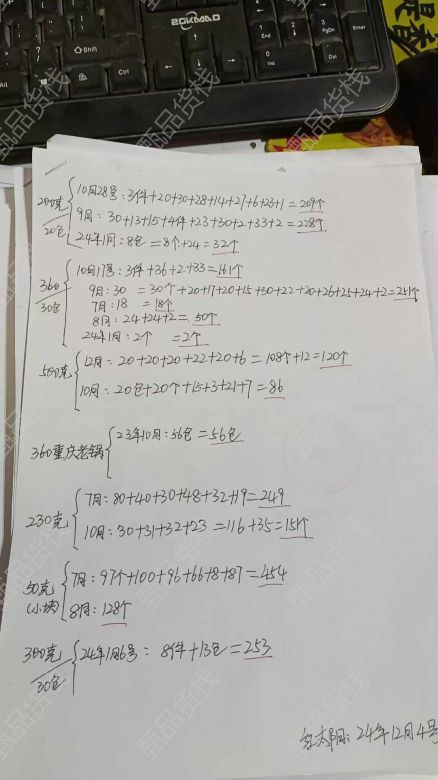 2GKMAO
Shift
Ctrl
End
PgDn
Del
Enter
200克
20包
10月28号:3件+20+30+28+14+27+6+23+1=209个
9月:30+13+15+4件+23+30+2+33+2=228个
24年1月:8包=8个+24=32个
360
30包
10月17号:3件+36+2+33=161个
9月:30=30个+20+17+20+15+30+22+20+26+25+24+2=251个
7月:18=18个
8月:24+24+2=50个
24年1月:2个=2个
500克
12月:20+20+20+22+20+6=108个+12=120个
10月:20包+20个+15+3+21+7=86
360重庆老锅
23年10月:56包=56包
230克
7月:80+40+30+48+32+19=249
10月:30+31+32+23=116+35=151个
50克
(小块)
7月:97个+100+96+66+8+87=454
8月:128个
300克
30包
24年1月6号:8件+13包=253
24年12月4号
甄品货栈